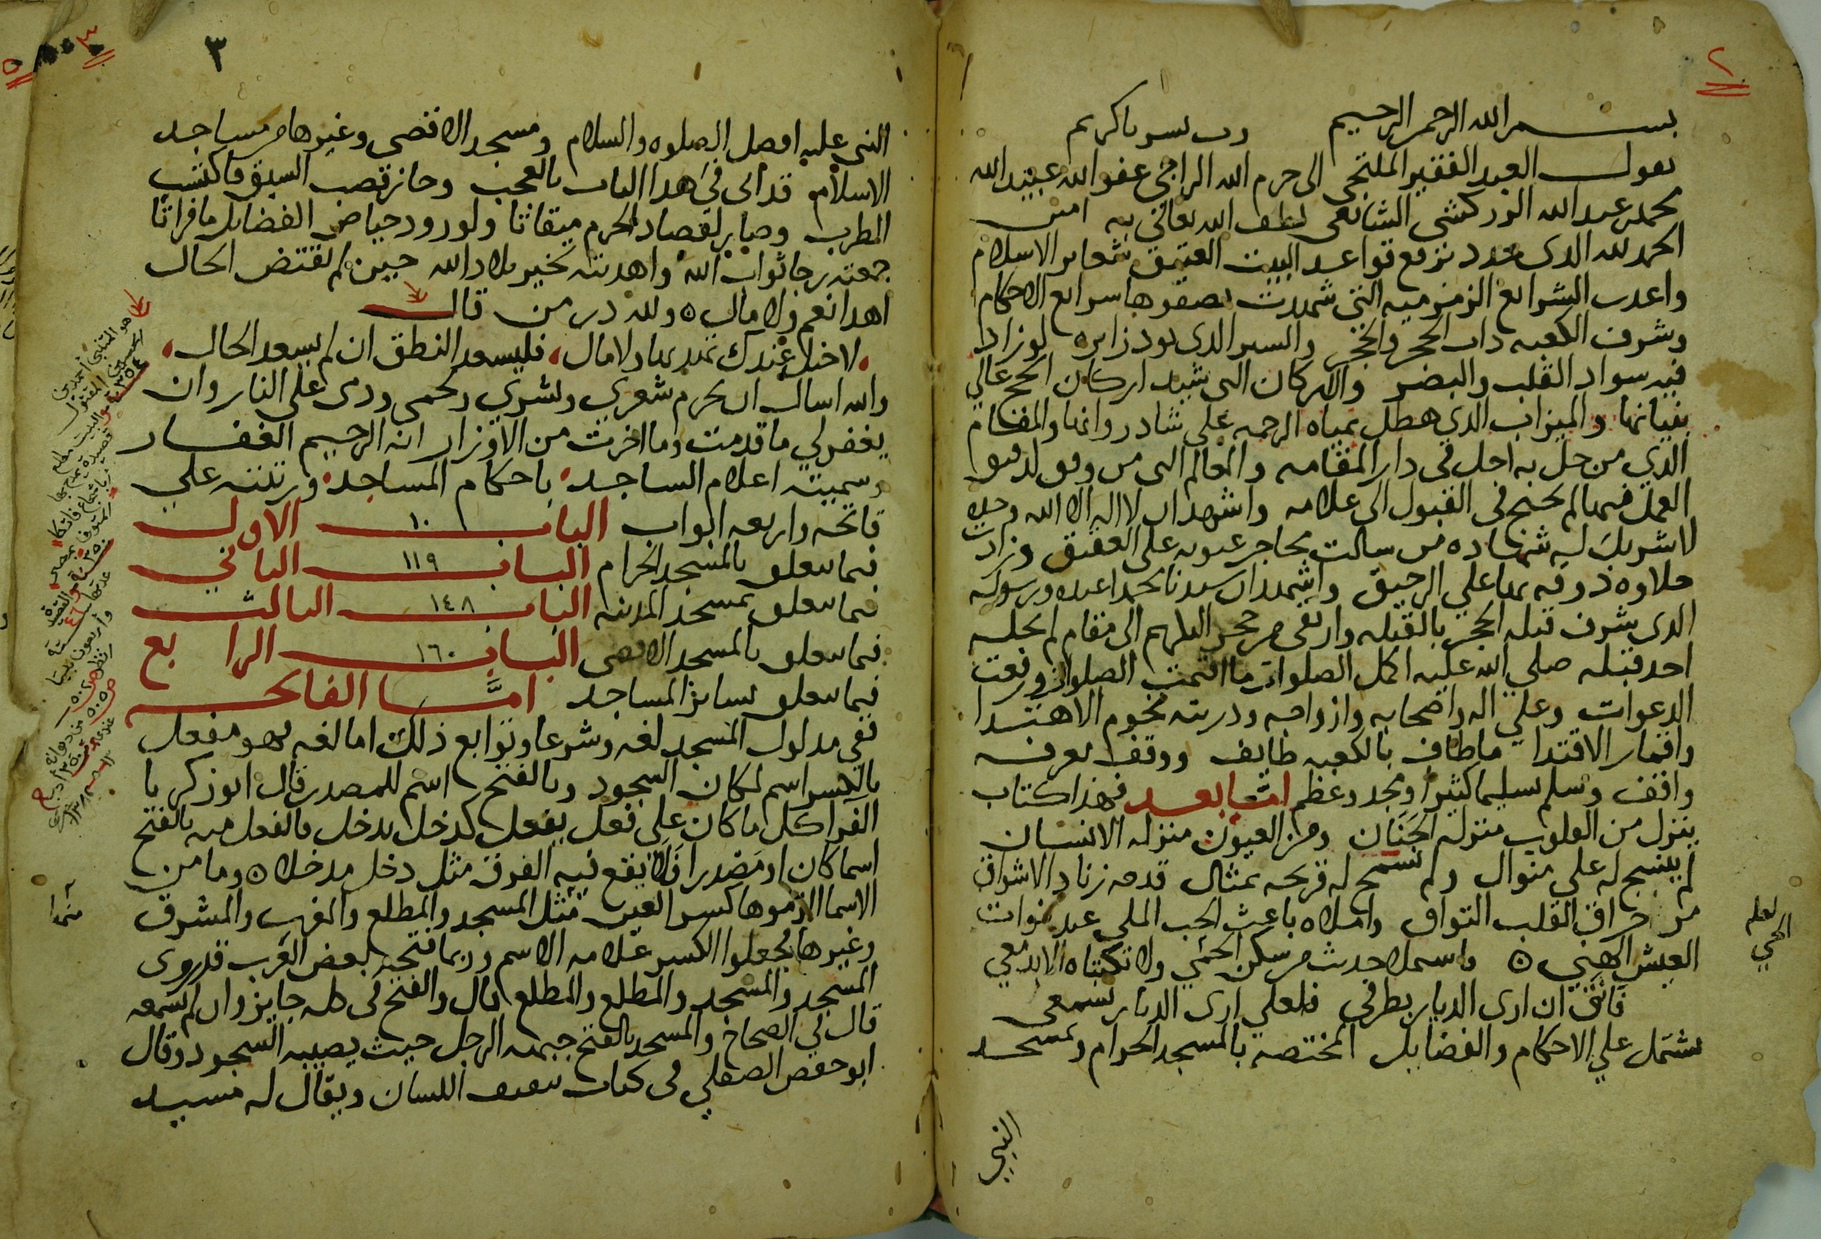 ٢
بسم الله الرحمن الرحيم رب يسر يا كريم
يقول العبد الفقير الملتجى الى حرم الله الراجى عفو الله عبيد الله
محمد بن عبد الله الزركشى الشافعى لطف الله تعالى به امين
الحمد لله الذى مهد برفع قواعد البيت العتيق شعاير الاسلام
واعدب الشرايع الزمزميه التى شهدت بصفوها سرايع الاحكام
وشرف الكعبه دات الحجر والحجر والستر الذى يود زايره لو زاد
فيه سواد القلب والبصر والاركان التى شيد اركان الحج عالي
بنيانها والميزاب الذي هطل بمياه الرحمه على شادروانها والمقام
الذي من حل به احل في دار المقامه والمعالم التى من وفق لدقيق
العمل فيها لم يحتج فى القبول الى علامه واشهد ان لا اله الا الله وحده
لا شريك له شهاده من سالت محاجر عيونه على العقيق وزادت
حلاوه ذوقه بها على الرحيق واشهد ان سيدنا محمدا عبده ورسوله
الذى شرف قبله الحجر بالقبله وارتقى من حجر اليهم الى مقام لم يحله
احد قبله صلي الله عليه اكمل الصلوات ما اقيمت الصلوات ورفعت
الدعوات وعلي اله واصحابه وازواجه ودريته نجوم الاهتدا
واقمار الاقتدا ما طاف بالكعبه طايف ووقف بعرفه
واقف وسلم تسليما كثيرا ومجد وعظم اما بعد فهذا كتاب
يتنزل من القلوب منزله الجنان ومن العيون منزله الانسان
لم ينسج له على منوال ولم تسمح له قريحه بمثال قدحه زناد الاشواق
من حراق القلب التواق واملاه باعث الحب الملي عند فوات
العيش الهني ٥ واسملا حدث من سكن الحمي ولا تكتباه الا بدمعي
فاتني ان ارى الديار بطرفي فلعلي ارى الديار بسمعي
يشتمل علي الاحكام والفضايل المختصه بالمسجد الحرام ومسجد
النبي
لعله
الحي
٣
النبى عليه افضل الصلوه والسلام ومسجد الاقصى وغيرها من مساجد
الاسلام قد اتى فى هذا الباب بالعجب وحاز قصب السبق فاكتسب
الطرب وصار لقصاد الحرم ميقاتا ولورود حياض الفضايل ما فراتا
جمعته رجا ثواب الله واهديته لخير بلاد الله حين لم تقتض الحال
اهدا نعم ولا مال ٥ ولله در من قال
لا خيل عندك تهديها ولا مال، فليسعد النطق ان لم يسعد الحال،
والله اسال ان يحرم شعري وبشري ولحمي ودمى على النار وان
يغفر لي ما قدمت وما اخرت من الاوزار انه الرحيم الغفار
وسميته اعلام الساجد باحكام المساجد ورتبته علي
فاتحه واربعه ابواب الباب ١٠ الاول
فيما يتعلق بالمسجد الحرام الباب ١١٩ الثاني
فيما يتعلق بمسجد المدينه الباب ١٤٨ الثالث
فيما يتعلق بالمسجد الاقصى الباب ١٦٠ الرابع
فيما يتعلق بساير المساجد اما الفاتحه
ففي مدلول المسجد لغه وشرعا وتوابع ذلك اما لغه فهو مفعل
بالكسر اسم لمكان السجود وبالفتح اسم للمصدر قال ابو زكريا
الفرا كل ما كان على فعل يفعل كدخل يدخل فالمفعل منه بالفتح
اسما كان او مصدرا فلا يقع فيه الفرق مثل دخل مدخلا ٥ وما من
الاسما الزموها كسر العين مثل المسجد والمطلع والمغرب والمشرق
وغيرها فجعلوا الكسر علامه الاسم وربما فتحه بعض العرب قد روى
المسجد والمسجد والمطلع والمطلع قال والفتح فى كله جايز وان لم نسمعه
قال في الصحاح والمسجد بالفتح جبهه الرجل حيث يصيبه السجود وقال
ابو حفص الصقلي فى كتاب تثقيف اللسان ويقال له مسيد
هو المتنبى أحمد بن